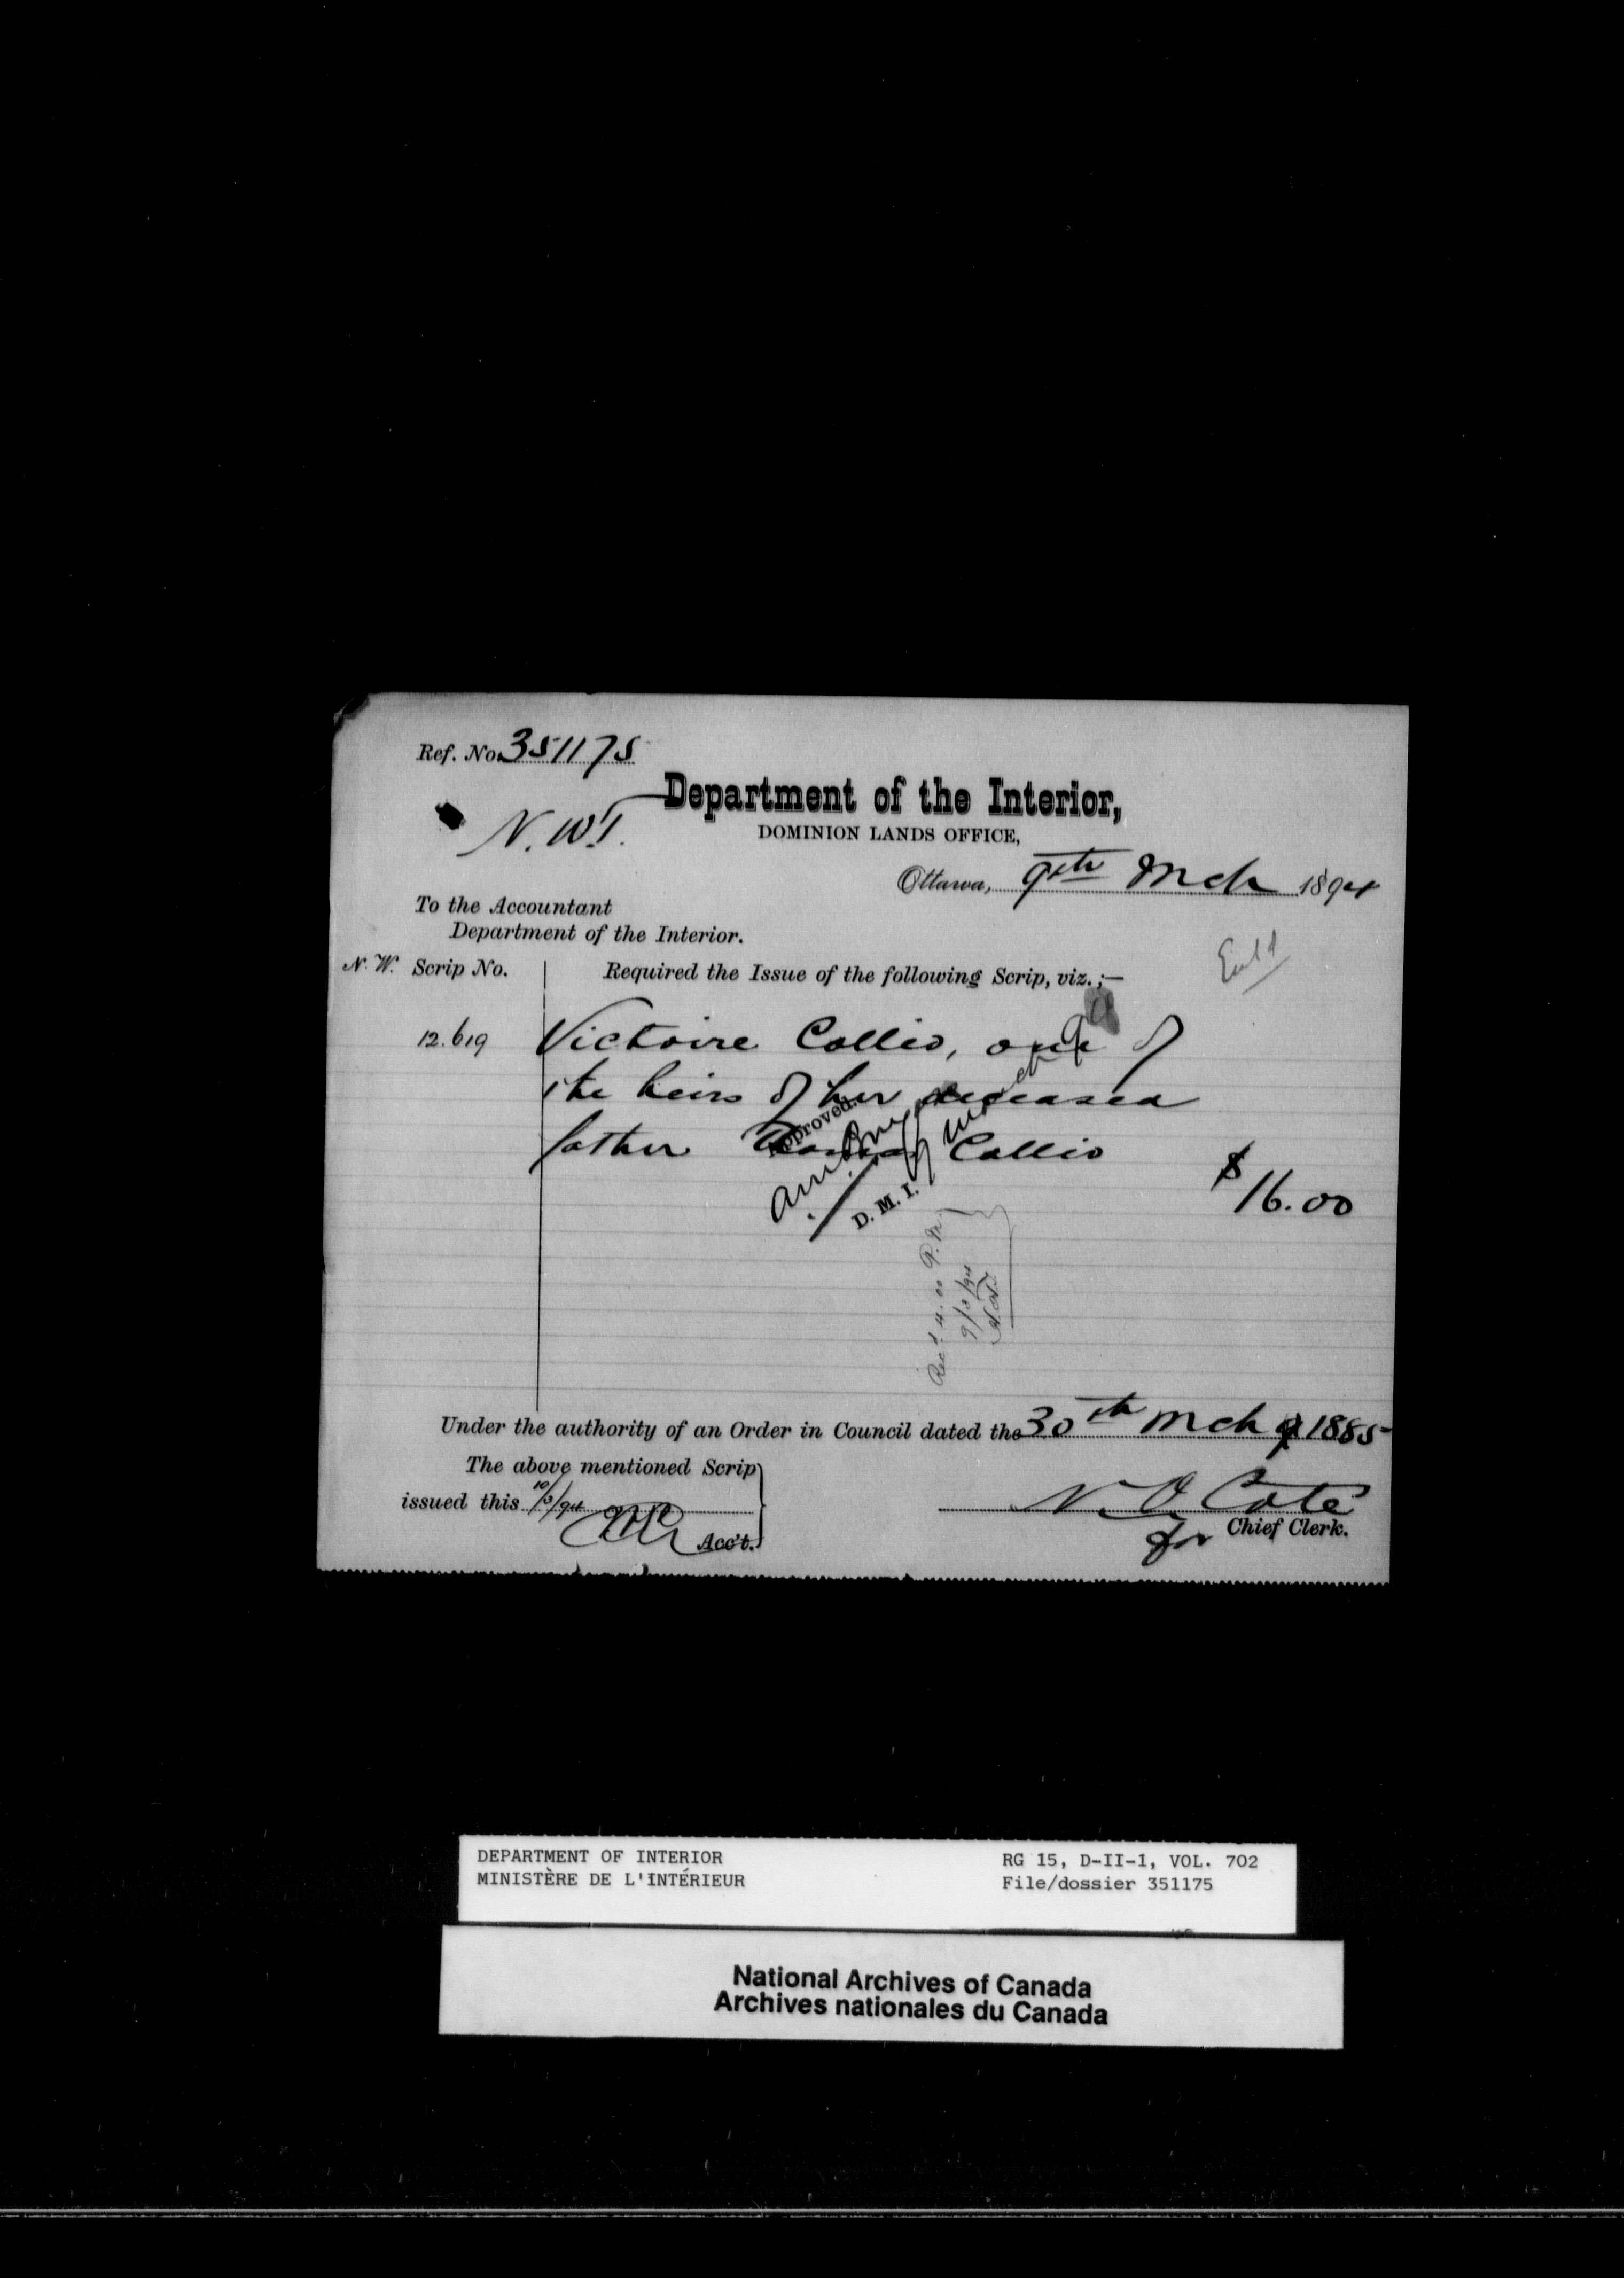 Ref. No. 351175
N.W.T.
Department of the Interior,
DOMINION LANDS OFFICE,
Ottawa, 9th Mch 1894
To the Accountant
Department of the Interior.
N. W. Scrip No.
Required the Issue of the following Scrip, viz.;—
Ent'd
12.619 Victoire Collio, one of
the heirs of her deceased
father Collio
$16.00
Approved.
D. M. I.
Rec'd 4.00 P.M.
9/3/94
Under the authority of an Order in Council dated the 30th Mch 1885
The above mentioned Scrip
issued this 10/3/94
Acc't.
N. O Coté
for Chief Clerk.
DEPARTMENT OF INTERIOR
MINISTÈRE DE L'INTÉRIEUR
RG 15, D-II-1, VOL. 702
File/dossier 351175
National Archives of Canada
Archives nationales du Canada